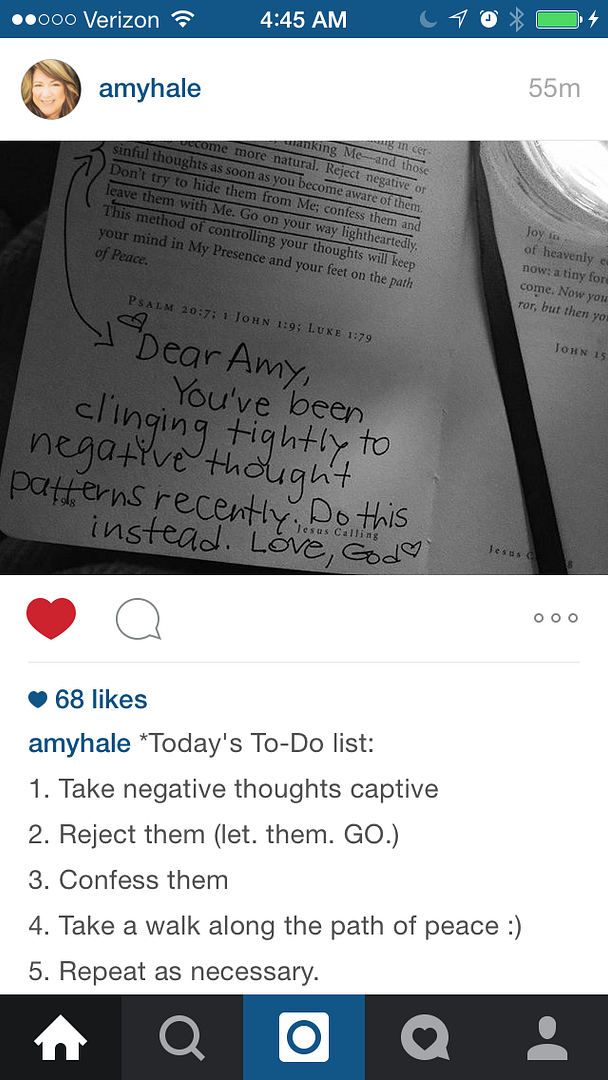 Verizon 4:45 AM
amyhale 55m
thanking Me—and those
become more natural. Reject negative or
sinful thoughts as soon as you become aware of them.
Don't try to hide them from Me; confess them and
leave them with Me. Go on your way lightheartedly.
This method of controlling your thoughts will keep
your mind in My Presence and your feet on the path
of Peace.
PSALM 20:7; 1 JOHN 1:9; LUKE 1:79
Dear Amy,
You've been
clinging tightly to
negative thought
patterns recently. Do this
instead. Love, God
98
Jesus Calling
Joy
of heavenly
now: a tiny
come. Now you
ror, but then
JOHN 15
Jesus
68 likes
amyhale *Today's To-Do list:
1. Take negative thoughts captive
2. Reject them (let. them. GO.)
3. Confess them
4. Take a walk along the path of peace :)
5. Repeat as necessary.